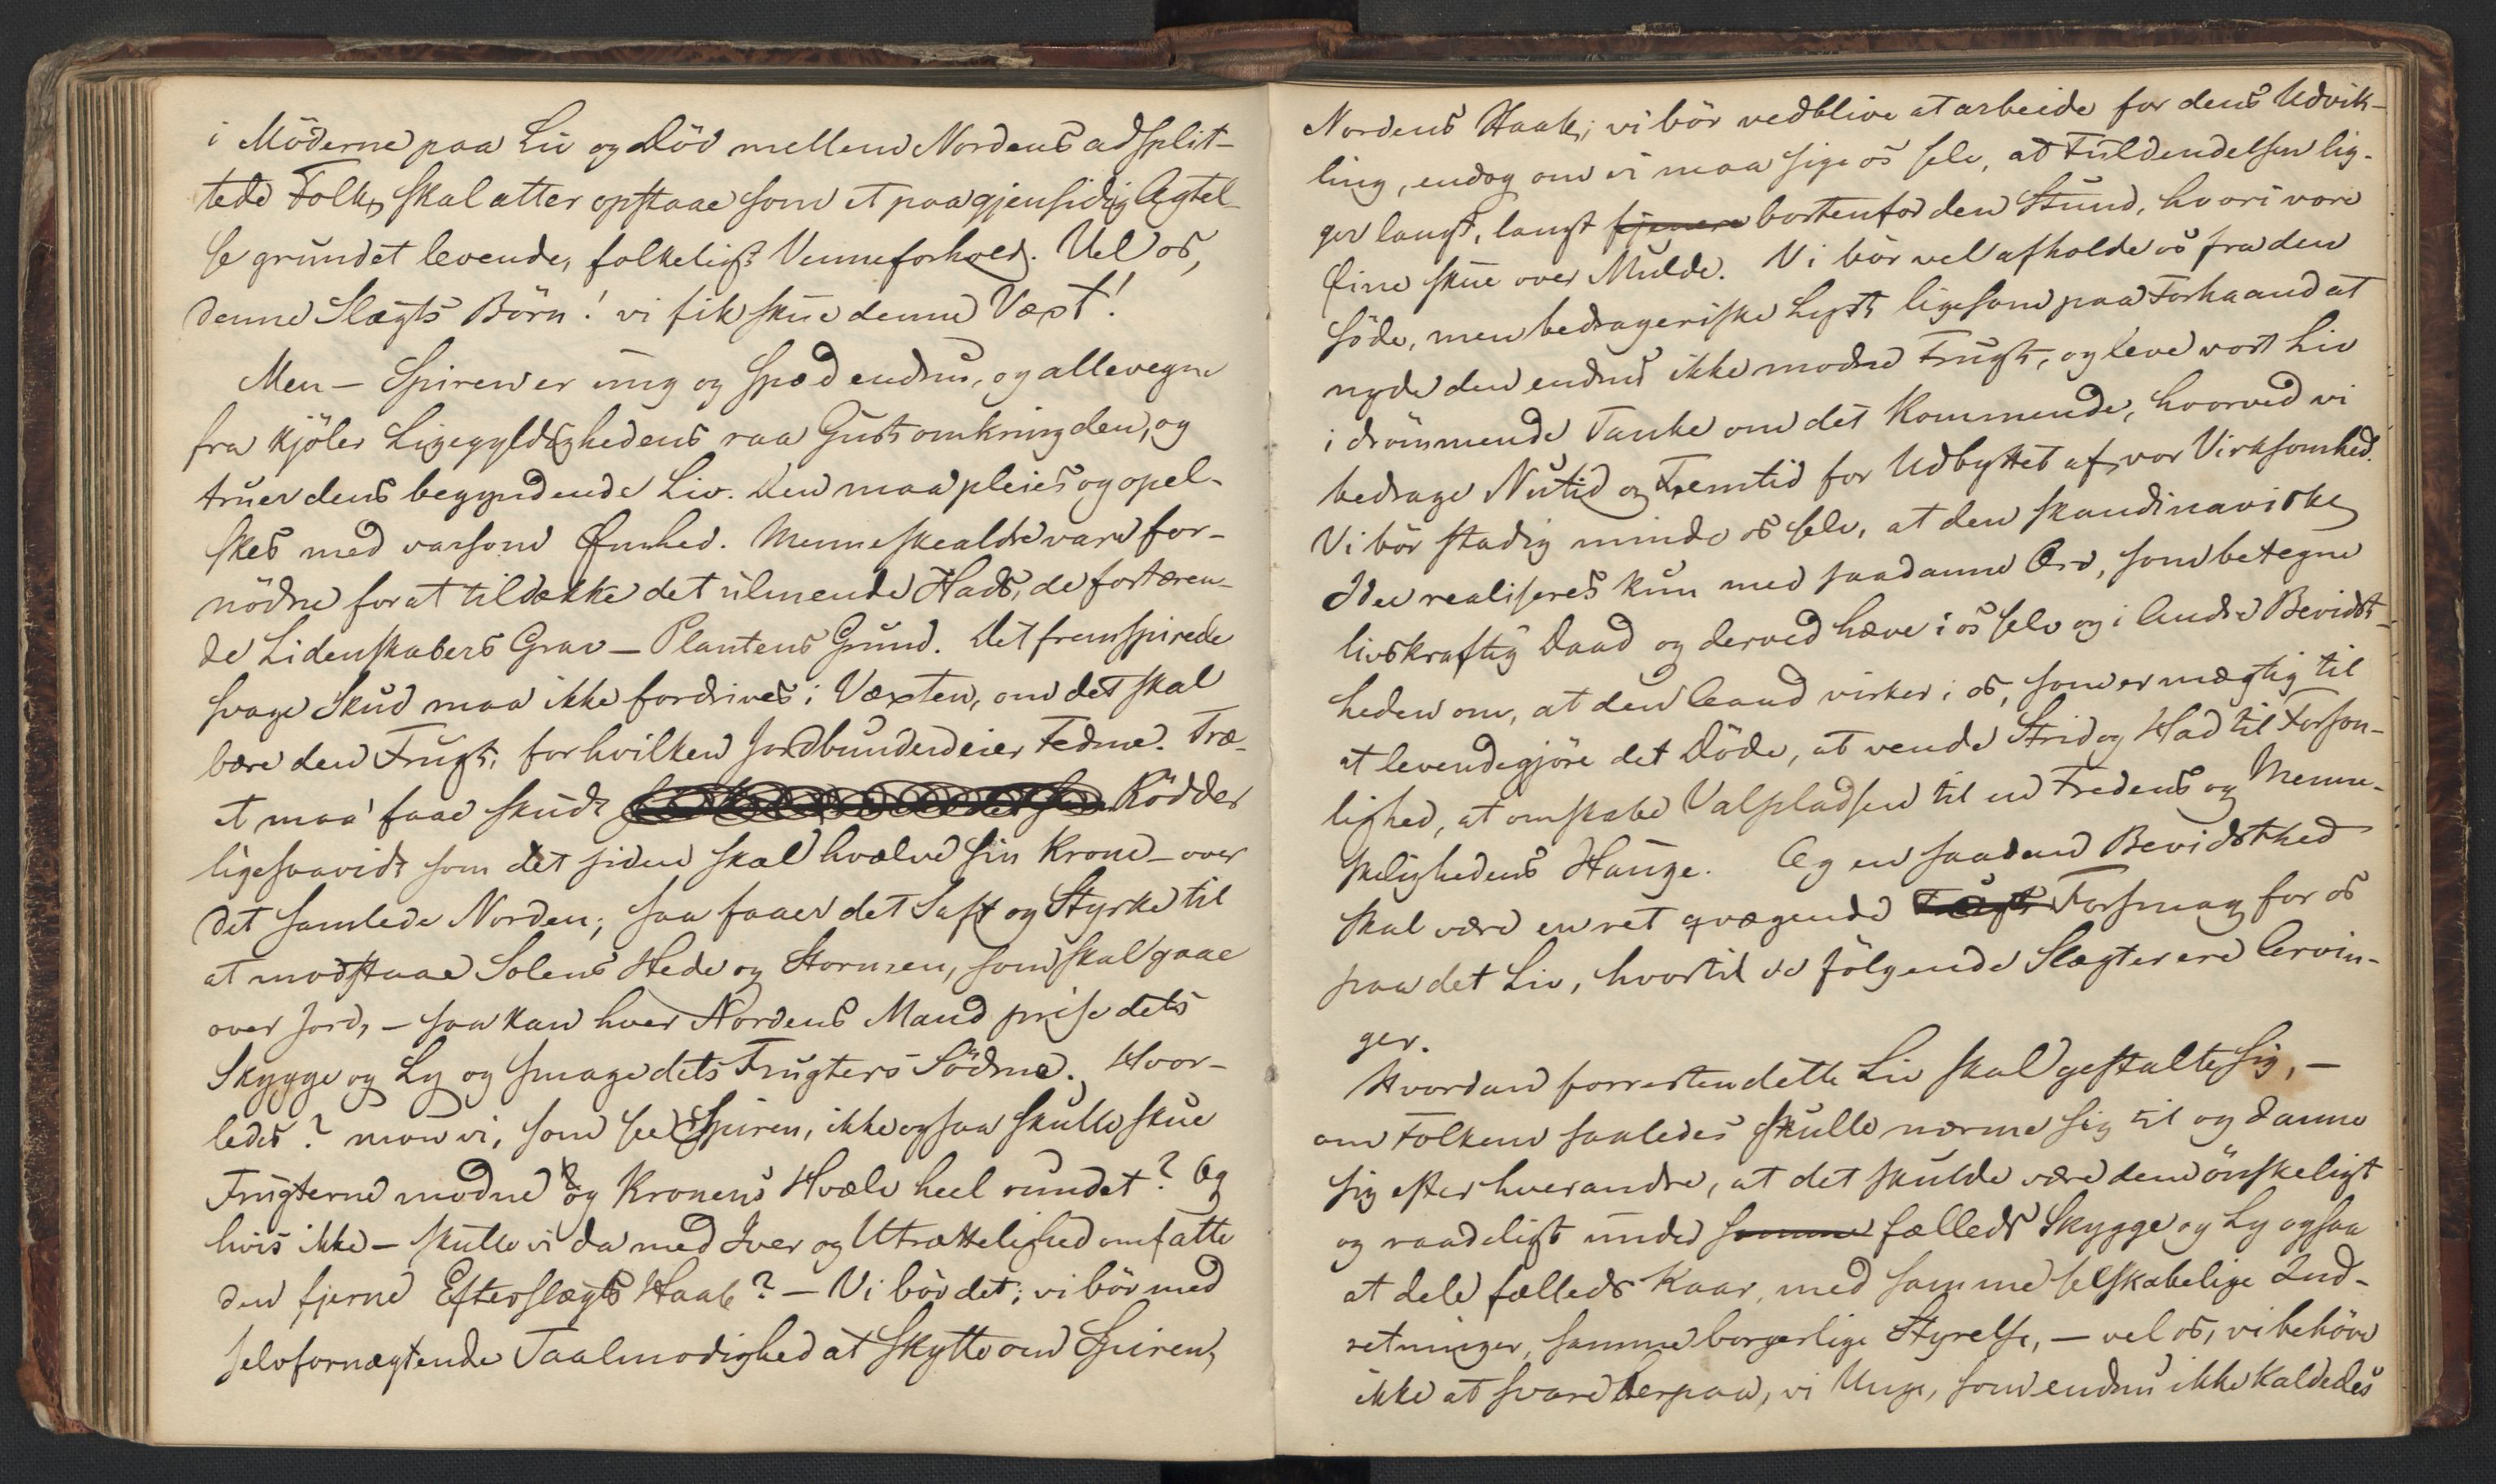 i Möderne paa Liv og Död mellem Nordens adsplit-
tede Folk, skal atter opstaae som et paa gjensidig Agtel-
se grundet levende, folkeligt Venneforhold. Vel os,
denne Slægts Börn! vi fik skue denne Væxt!
Men — Spiren er ung og spæd endnu, og allevegne
fra kjöler Ligegyldighedens raa Gust omkring den, og
truer dens begyndende Liv. Den maa pleies og opel-
skes med varsom Ømhed. Menneskealdre vare for-
nödne for at tildække det ulmende Hads, de fortæren-
de Lidenskabers Grav — Plantens Grund. Det fremspirede
svage Skud maa ikke fordrives i Væxten, om det skal
bære den Frugt, for hvilken Jordbunden eier Fedme. Træ-
et maa faae skudt Rödder
ligesaavidt som det siden skal hvælve sin Krone — over
det samlede Norden; saa faaer det Saft og Styrke til
at modstaae Solens Hede og Stormen, som skal gaae
over Jord, — saa kan hver Nordens Mand prise dets
Skygge og Ly og smage dets Frugters Södme. Hvor-
ledes? mon vi, som see Spiren, ikke ogsaa skulle skue
Frugterne modne og Kronens Hvælv heel rundet? Og
hvis ikke — skulle vi da med Iver og Utrættelighed omfatte
den fjerne Efterslægts Haab? — Vi bör det; vi bör med
selvfornægtende Taalmodighed at skytte om Spiren,
Nordens Haab; vi bör vedblive at arbeide for dens Udvik-
ling, endog om vi maa sige os selv, at Fuldendelsen lig-
ger langt, langt fjernere bortenfor den Stund, hvori vore
Øine skue over Mulde. Vi bör vel afholde os fra den
söde, men bedrageriske Lyst, ligesom paa Forhaand at
nyde den endnu ikke modne Frugt, og leve vort Liv
i drömmende Tanke om det Kommende, hvorved vi
bedrage Nutid og Fremtid for Udbyttet af vor Virksomhed.
Vi bör stadig minde os selv, at den skandinaviske
Idee realiseres kun med saadanne Ord, som betegne
livskraftig Daad og derved hæve i os selv og i Andre Bevidst-
heden om, at den Aand virker i os, som er mægtig til
at levendegjöre det Döde, at vende Strid og Had til Forson-
lighed, at omskabe Valpladsen til en Fredens og Menne-
skelighedens Hauge. Og en saadan Bevidsthed
skal være en ret qvægende Frugt Forsmag for os
paa det Liv, hvortil de fölgende Slægter ere Arvin-
ger.
Hvordan forresten dette Liv skal gestalte sig, —
om Folkene saaledes skulle nærme sig til og danne
sig efter hverandre, at det skulde være dem önskeligt
og raadeligt under samme fælleds Skygge og Ly ogsaa
at dele fælleds Kaar, med samme selskabelige Ind-
retninger, samme borgerlige Styrelse, — vel os, vi behöve
ikke at svare derpaa, vi Unge, som endnu ikke kaldedes